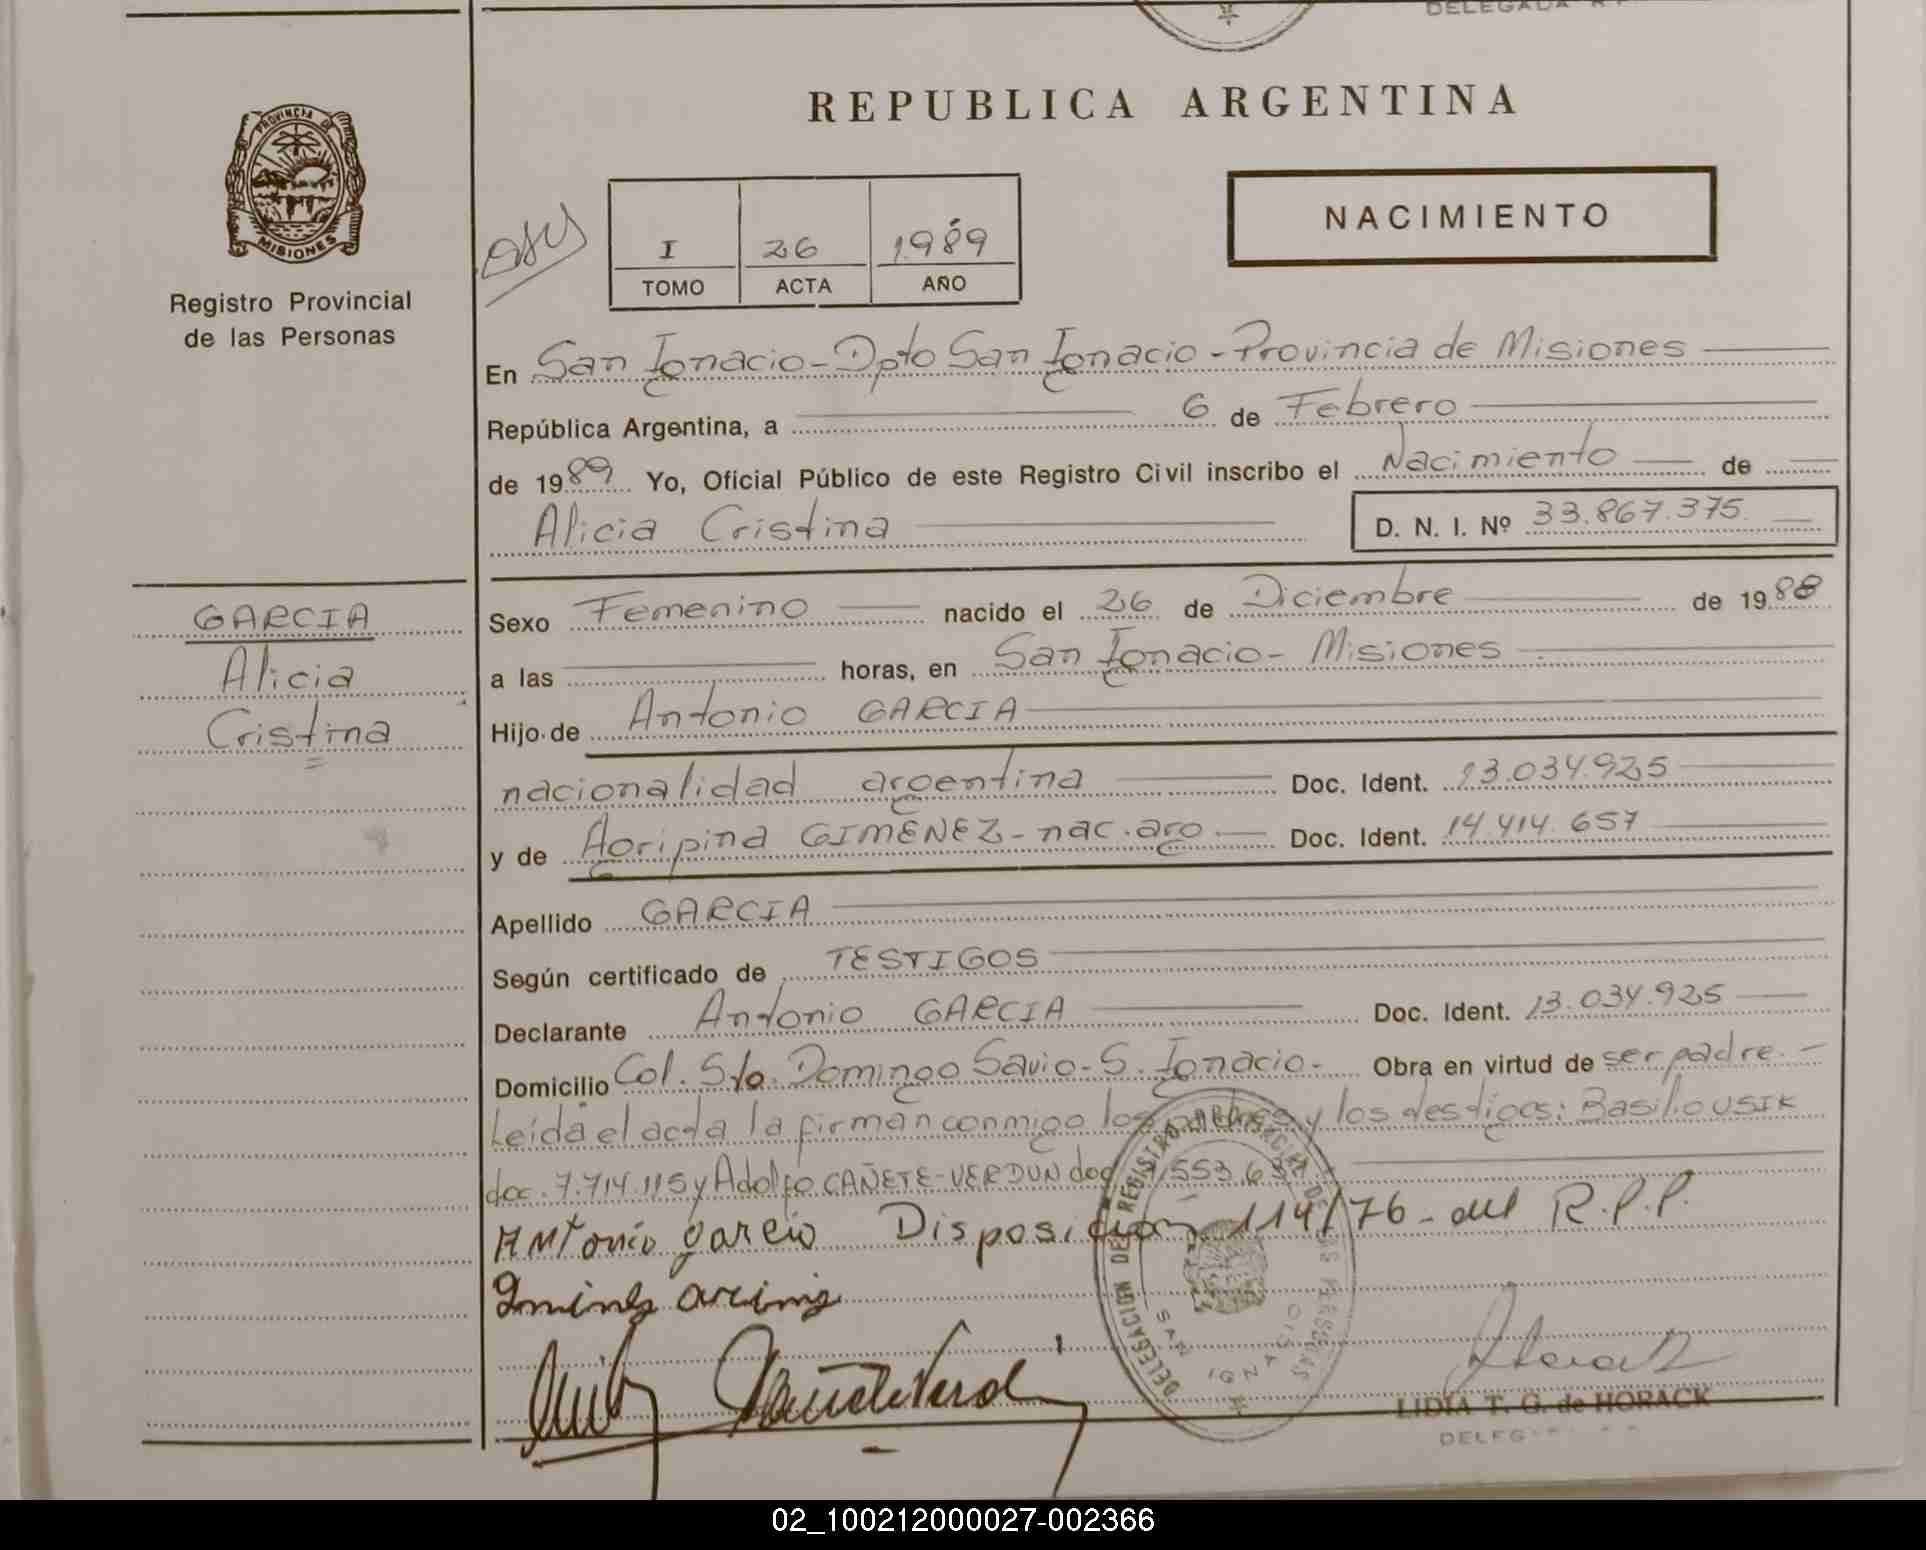 DELEGADA
REPUBLICA ARGENTINA
PROVINCIA DE
MISIONES
Registro Provincial
de las Personas
I 26 1989
TOMO ACTA AÑO
NACIMIENTO
En San Ignacio - Dpto San Ignacio - Provincia de Misiones
República Argentina, a 6 de Febrero
de 1989 Yo, Oficial Público de este Registro Civil inscribo el Nacimiento de
Alicia Cristina D. N. I. Nº 33.867.375
GARCIA
Alicia
Cristina
Sexo Femenino nacido el 26 de Diciembre de 1988
a las horas, en San Ignacio - Misiones
Hijo de Antonio GARCIA
nacionalidad argentina Doc. Ident. 13.034.925
y de Agripina GIMENEZ - nac. arg. Doc. Ident. 14.414.657
Apellido GARCIA
Según certificado de TESTIGOS
Declarante Antonio GARCIA Doc. Ident. 13.034.925
Domicilio Col. Sto. Domingo Savio - S. Ignacio - Obra en virtud de ser padre. -
Leída el acta la firman conmigo los padres y los testigos: Basilio USIK
doc. 7.714.115 y Adolfo CAÑETE-VERDUN doc
Antonio garcia Disposición 114/76 - del R.P.P.
DELEGACION DEL REGISTRO PROVINCIAL DE LAS PERSONAS
SAN IGNACIO
LIDIA T. G. de HORACK
DELEG
02_100212000027-002366